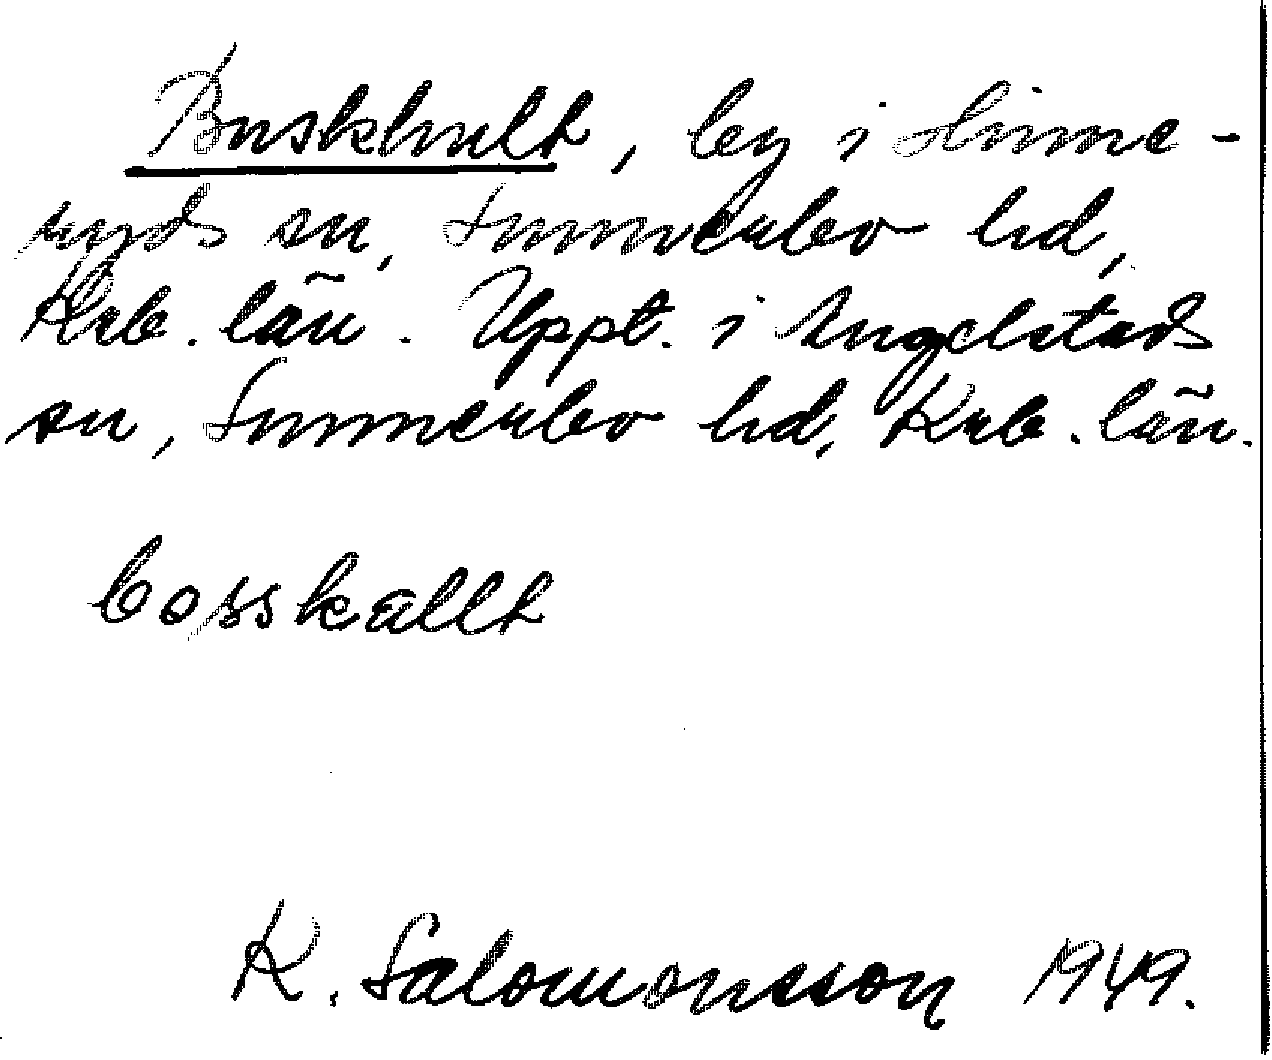 Buskhult, by i Linne-
ryds sn, Sunnerbo hd,
Krb. län. Uppt. i Angelstads
sn, Sunnerbo hd, Krb. län.
bosskallt
K. Salomonsson 1949.